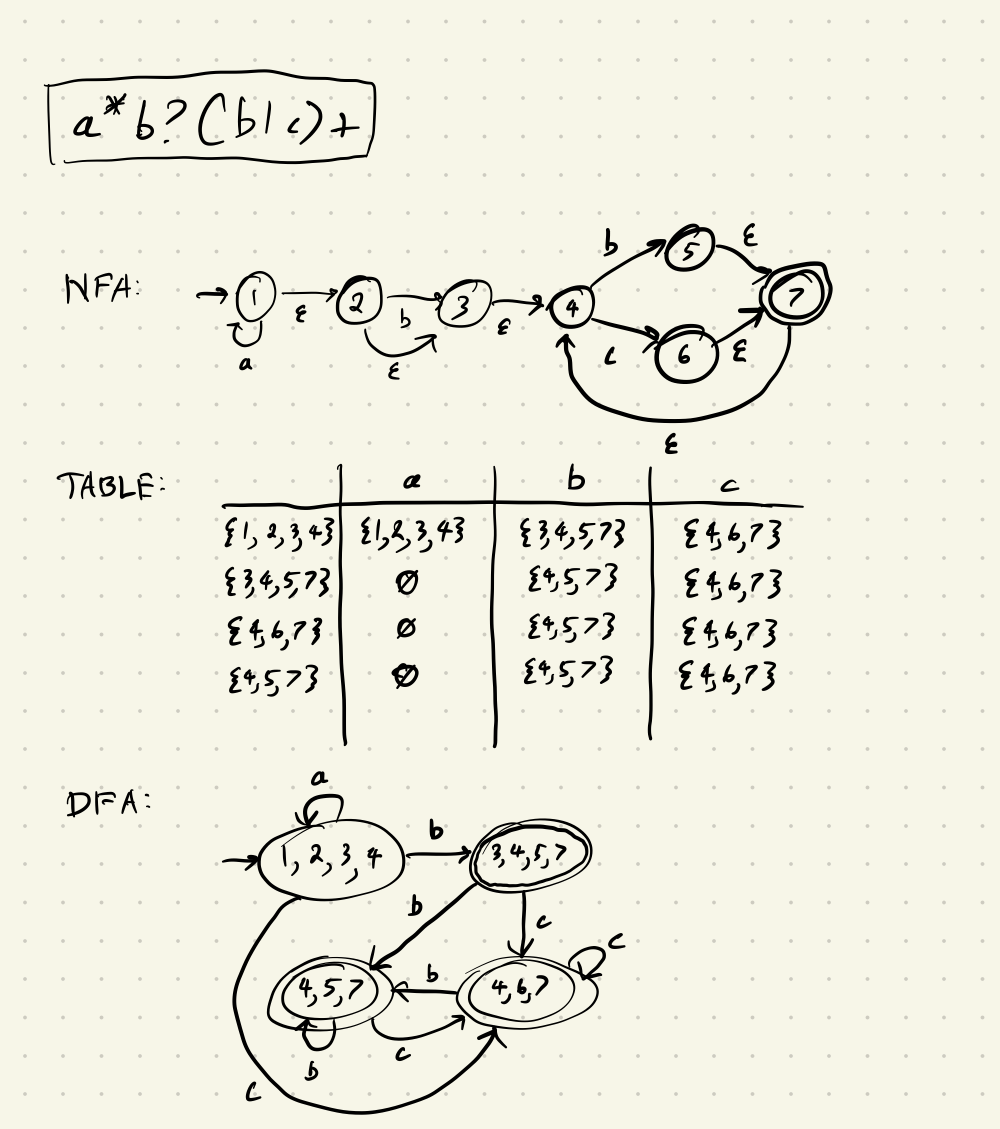 a*b?(b|c)+
NFA:
1 ε 2 b 3 ε 4 b 5 ε 7
a ε c 6 ε
ε
TABLE:
a b c
{1, 2, 3, 4} {1, 2, 3, 4} {3, 4, 5, 7} {4, 6, 7}
{3, 4, 5, 7} ∅ {4, 5, 7} {4, 6, 7}
{4, 6, 7} ∅ {4, 5, 7} {4, 6, 7}
{4, 5, 7} ∅ {4, 5, 7} {4, 6, 7}
DFA:
a
1, 2, 3, 4 b 3, 4, 5, 7
b c
4, 5, 7 b 4, 6, 7 c
b c
c